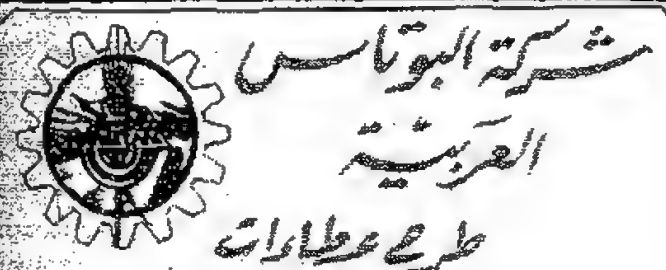 شركة البوتاس
العربية
طرح عطاءات